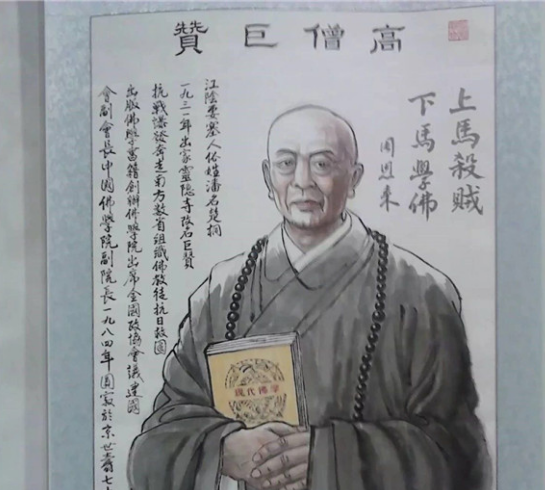 高僧巨贊
上馬殺賊
下馬學佛
周恩來
江陰要塞人俗姓潘名楚桐
一九三一年出家靈隱寺巨贊
抗戰爆發奔走南方數省組織佛教徒抗日救國
出版佛學書籍創辦佛學院出席全國政協會議建國
會副會長中國佛學院副院長一九八四年圓寂於京世壽七
現代佛學